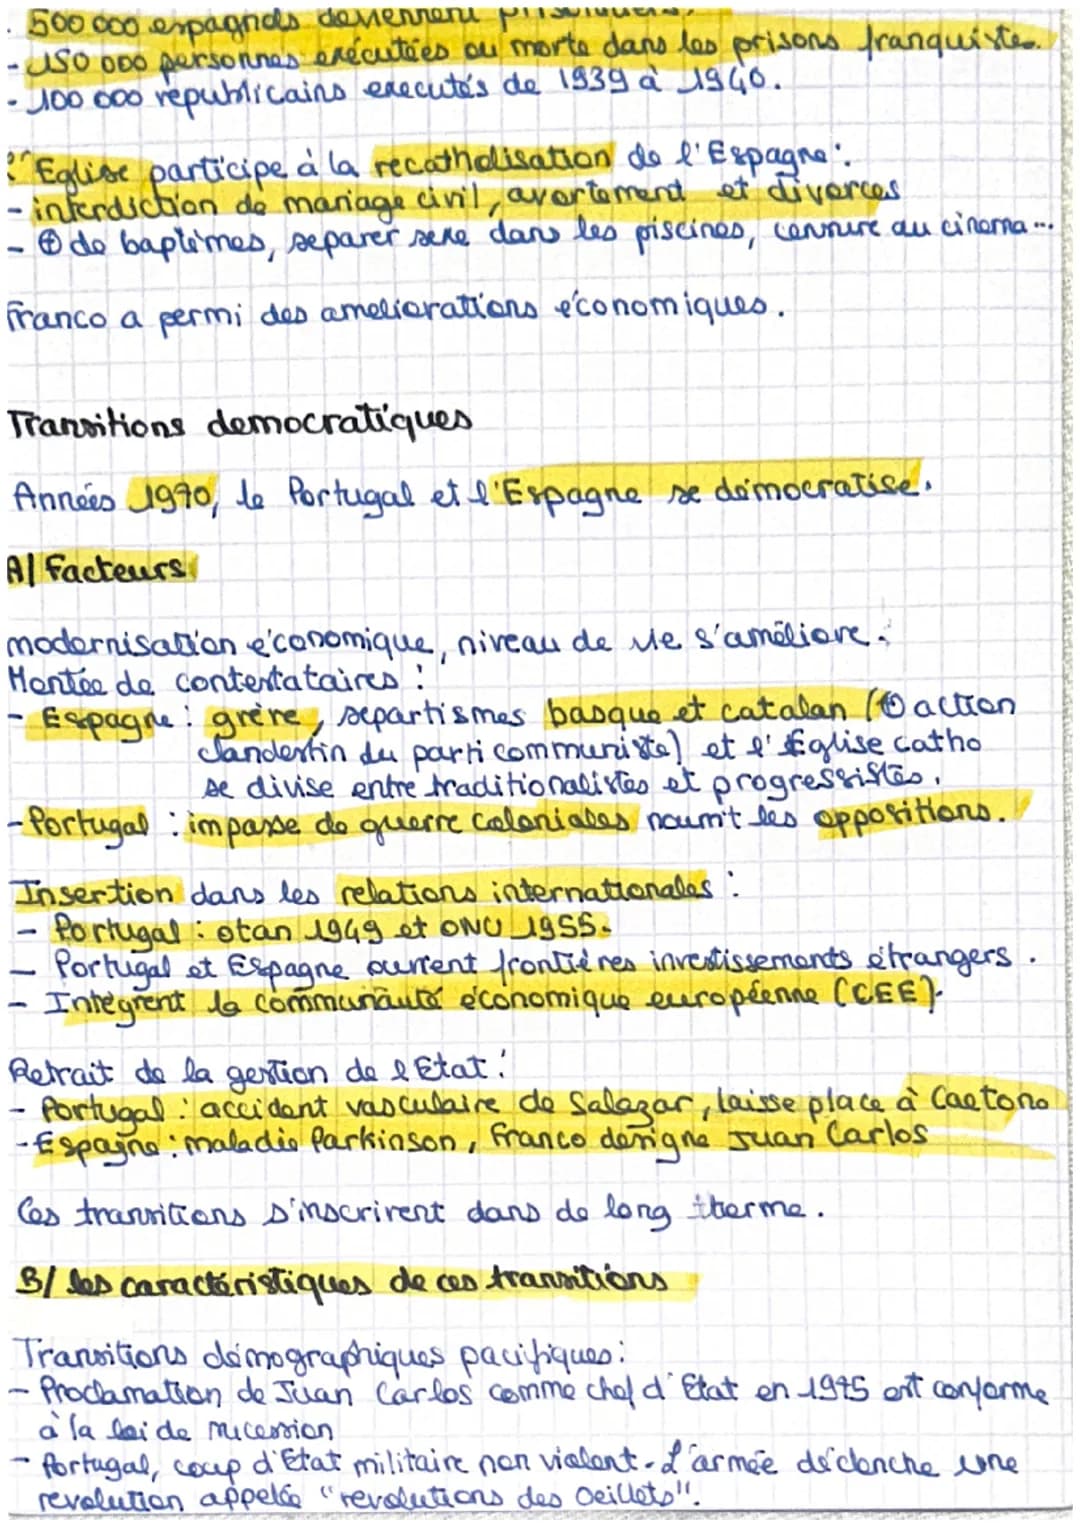 - 500 000 espagnols deviennent prisonniers.
- 150 000 personnes exécutées ou morte dans les prisons franquistes.
- 100 000 républicains executés de 1939 à 1940.
Eglise participe à la recatholisation de l'Espagne :
- interdiction de mariage civil, avortement et divorces
- ⊕ de baptèmes, separer sexe dans les piscines, censure au cinema...
Franco a permi des ameliorations économiques.
Transitions democratiques
Années 1970, le Portugal et l'Espagne se démocratise.
A/ Facteurs
modernisation économique, niveau de vie s'améliore.
Montée de contestataires :
- Espagne : grève, separtismes basque et catalan (⊕ action
clandestin du parti communiste) et l'Église catho
se divise entre traditionalistes et progressistes.
- Portugal : impasse de guerre coloniales nourrit les oppositions.
Insertion dans les relations internationales :
- Portugal : otan 1949 et ONU 1955.
- Portugal et Espagne ouvrent frontières investissements étrangers.
- Intègrent la communauté économique européenne (CEE).
Retrait de la gestion de l'Etat :
- Portugal : accident vasculaire de Salazar, laisse place à Caetono
- Espagne : maladie Parkinson, Franco designe Juan Carlos
Ces transitions s'inscrirent dans de long therme.
B/ les caractéristiques de ces transitions
Transitions démographiques pacifiques :
- Proclamation de Juan Carlos comme chef d'Etat en 1975 est conforme
à la loi de succession
- Portugal, coup d'Etat militaire non violent. L'armée déclenche une
revolution appelée "revolutions des Oeillets".